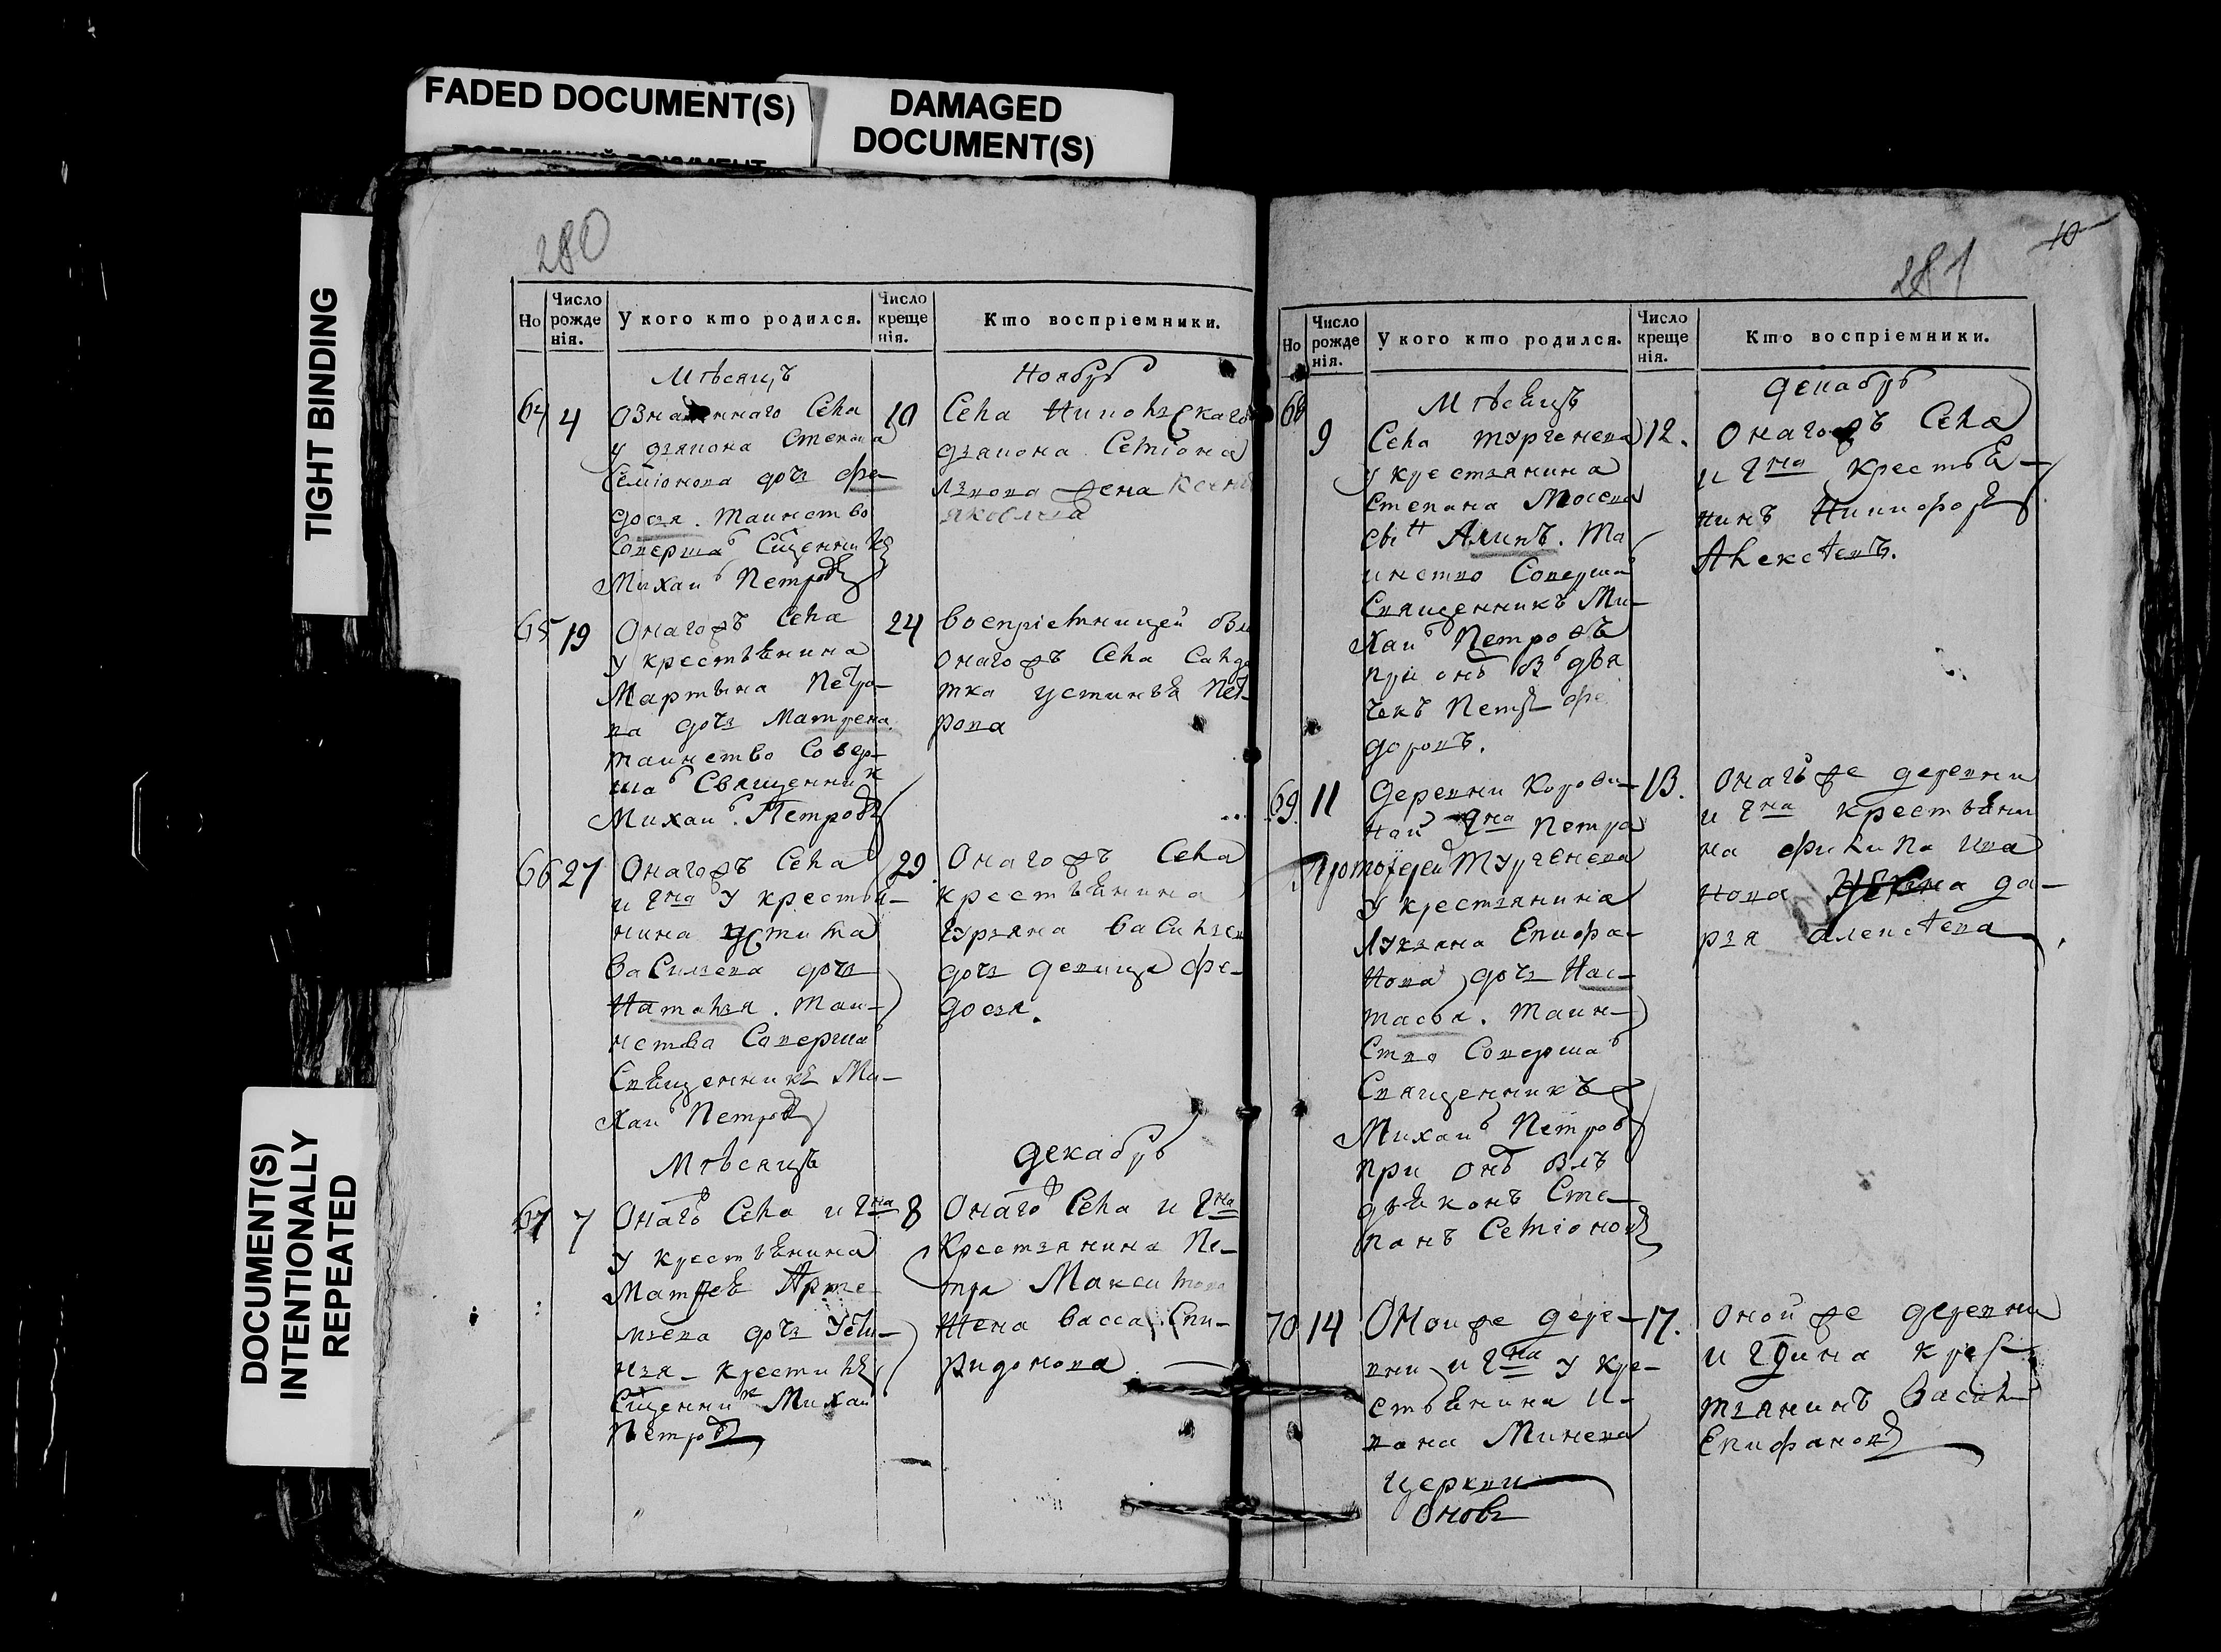 FADED DOCUMENT(S)
DAMAGED
DOCUMENT(S)
TIGHT BINDING
DOCUMENT(S)
INTENTIONALLY
REPEATED
280
Но
Число рожде нія.
У кого кто родился.
Число креще нія.
Кто воспріемники.
Мѣсяцъ
Ноябрь
64 4 10
Означеннаго села
у дьякона Степана
Семіонова дочь Фе-
досья. Таинство
Соверша Сщенникъ
Михаи Петровъ
Села
дьякона Семіона
жена
яковлева
65 19 24
Онагожъ села
у крестьянина
Мартына Петро-
ва дочь Матрена.
таинство Совер-
ша Священник
Михаи Петровъ
воспріемницей
онагожъ села салда
тка устинья Пет-
рова
66 27 29
Онагожъ села
и гна у крестья-
нина устима
Василева дочь
Наталья. Таи-
нства Соверша
Священникъ Ми-
хаи Петровъ
Онагожъ села
крестьянина
Гурьяна Васильев
дочь девица Фе-
досья.
Мѣсяцъ
декабрь
67 7 8
Онаго села и гна
у крестьянина
Матвея Арте-
мьева дочь Усти-
нья - крестилъ
Сщенник Михаи
Петровъ
Онаго села и гна
Крестьянина Пе-
тра Максимова
Жена васса Спи-
ридонова
10
281
Но
Число рожде нія.
У кого кто родился.
Число креще нія.
Кто воспріемники.
Мѣсяцъ
декабрь
68 9 12.
Села тургенева
у крестьянина
Степана Мосева
сынъ Та
инство Соверша
Священникъ Ми-
хаи Петровъ
при онб дья
чекъ Петръ Фе
доровъ.
Онагожъ села
и гна крестья-
нинъ Никифоръ
Алексеевъ.
69. 11 13.
Деревни Корови-
ной гна Петра
Протоіереи Тургенева
у крестьянина
Лукьяна Епифа-
нова дочь Нас-
тасья. Таин-
ство Соверша
Священникъ
Михаи Петровъ
при онб
дьяконъ Сте-
панъ Семіоновъ
Онагъже деревни
и гна крестьяни
на Филипа Ива
нова да-
рья алексеева
70 14 17.
Оноиже дере-
вни и гна у кре-
стьянина И-
вана Минева
церкви
оной же деревни
и гдина крес-
тьянинъ Васил
Епифановъ